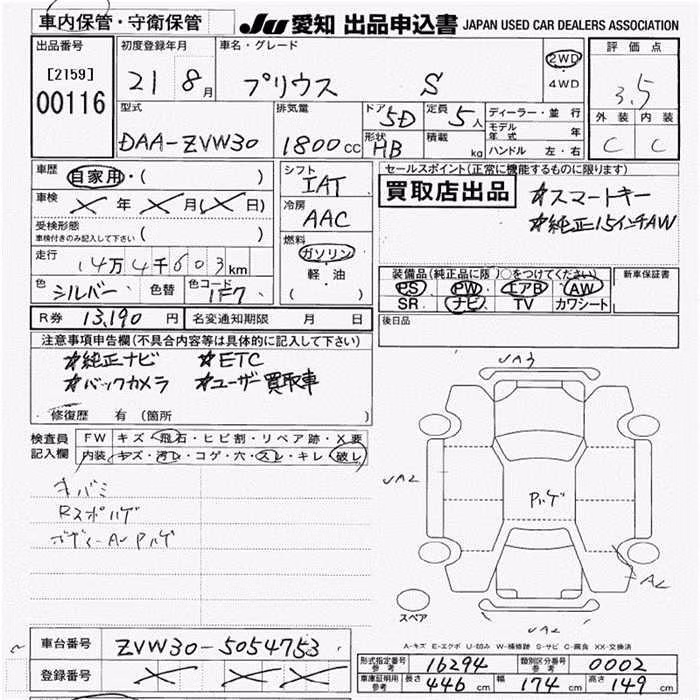 車内保管・守衛保管
JU 愛知 出品申込書 JAPAN USED CAR DEALERS ASSOCIATION
出品番号
[2159]
00116
初度登録年月
21 8月
車名・グレード
プリウス S
2WD
4WD
評価点
3.5
外装 内装
C C
型式
DAA-ZVW30
排気量
1800cc
ドア 5D
形状 HB
定員 5人
積載 kg
ディーラー・並行
モデル年式 年
ハンドル 左・右
車歴 自家用・( )
車検 × 年 × 月(× 日)
受検形態
車検付きのみ記入して下さい ( )
走行 14万4千603km
色 シルバー 色替 色コード 1F7
シフト
IAT
冷房
AAC
燃料
ガソリン
軽・油
( )
セールスポイント(正常に機能するものに限ります)
買取店出品
☆スマートキー
☆純正15インチAW
装備品(純正品に限)○をつけてください
PS PW エアB AW
SR ナビ TV カワシート
新車保証書
後日品
R券 13,190円 名変通知期限 月 日
注意事項申告欄(不具合内容等は具体的に記入して下さい)
☆純正ナビ ☆ETC
☆バックカメラ ☆ユーザー買取車
修復歴 有 (箇所 )
検査員記入欄
FW キズ・飛石・ヒビ割・リペア跡・X要
内装 キズ・汚レ・コゲ・穴・スレ・キレ・破レ
キバミ
Rスポハゲ
ボディーA・Pハゲ
UA3
UA2
Pハゲ
A2
UA2
スペア
A-キズ E-エクボ U-凹み W-補修跡 S-サビ C-腐食 XX-交換済
車台番号 ZVW30-5054753
登録番号 × × ×
形式指定番号 参考 16294 類別区分番号 参考 0002
車庫証明用 参考 長さ 446cm 幅 174cm 高さ 149cm